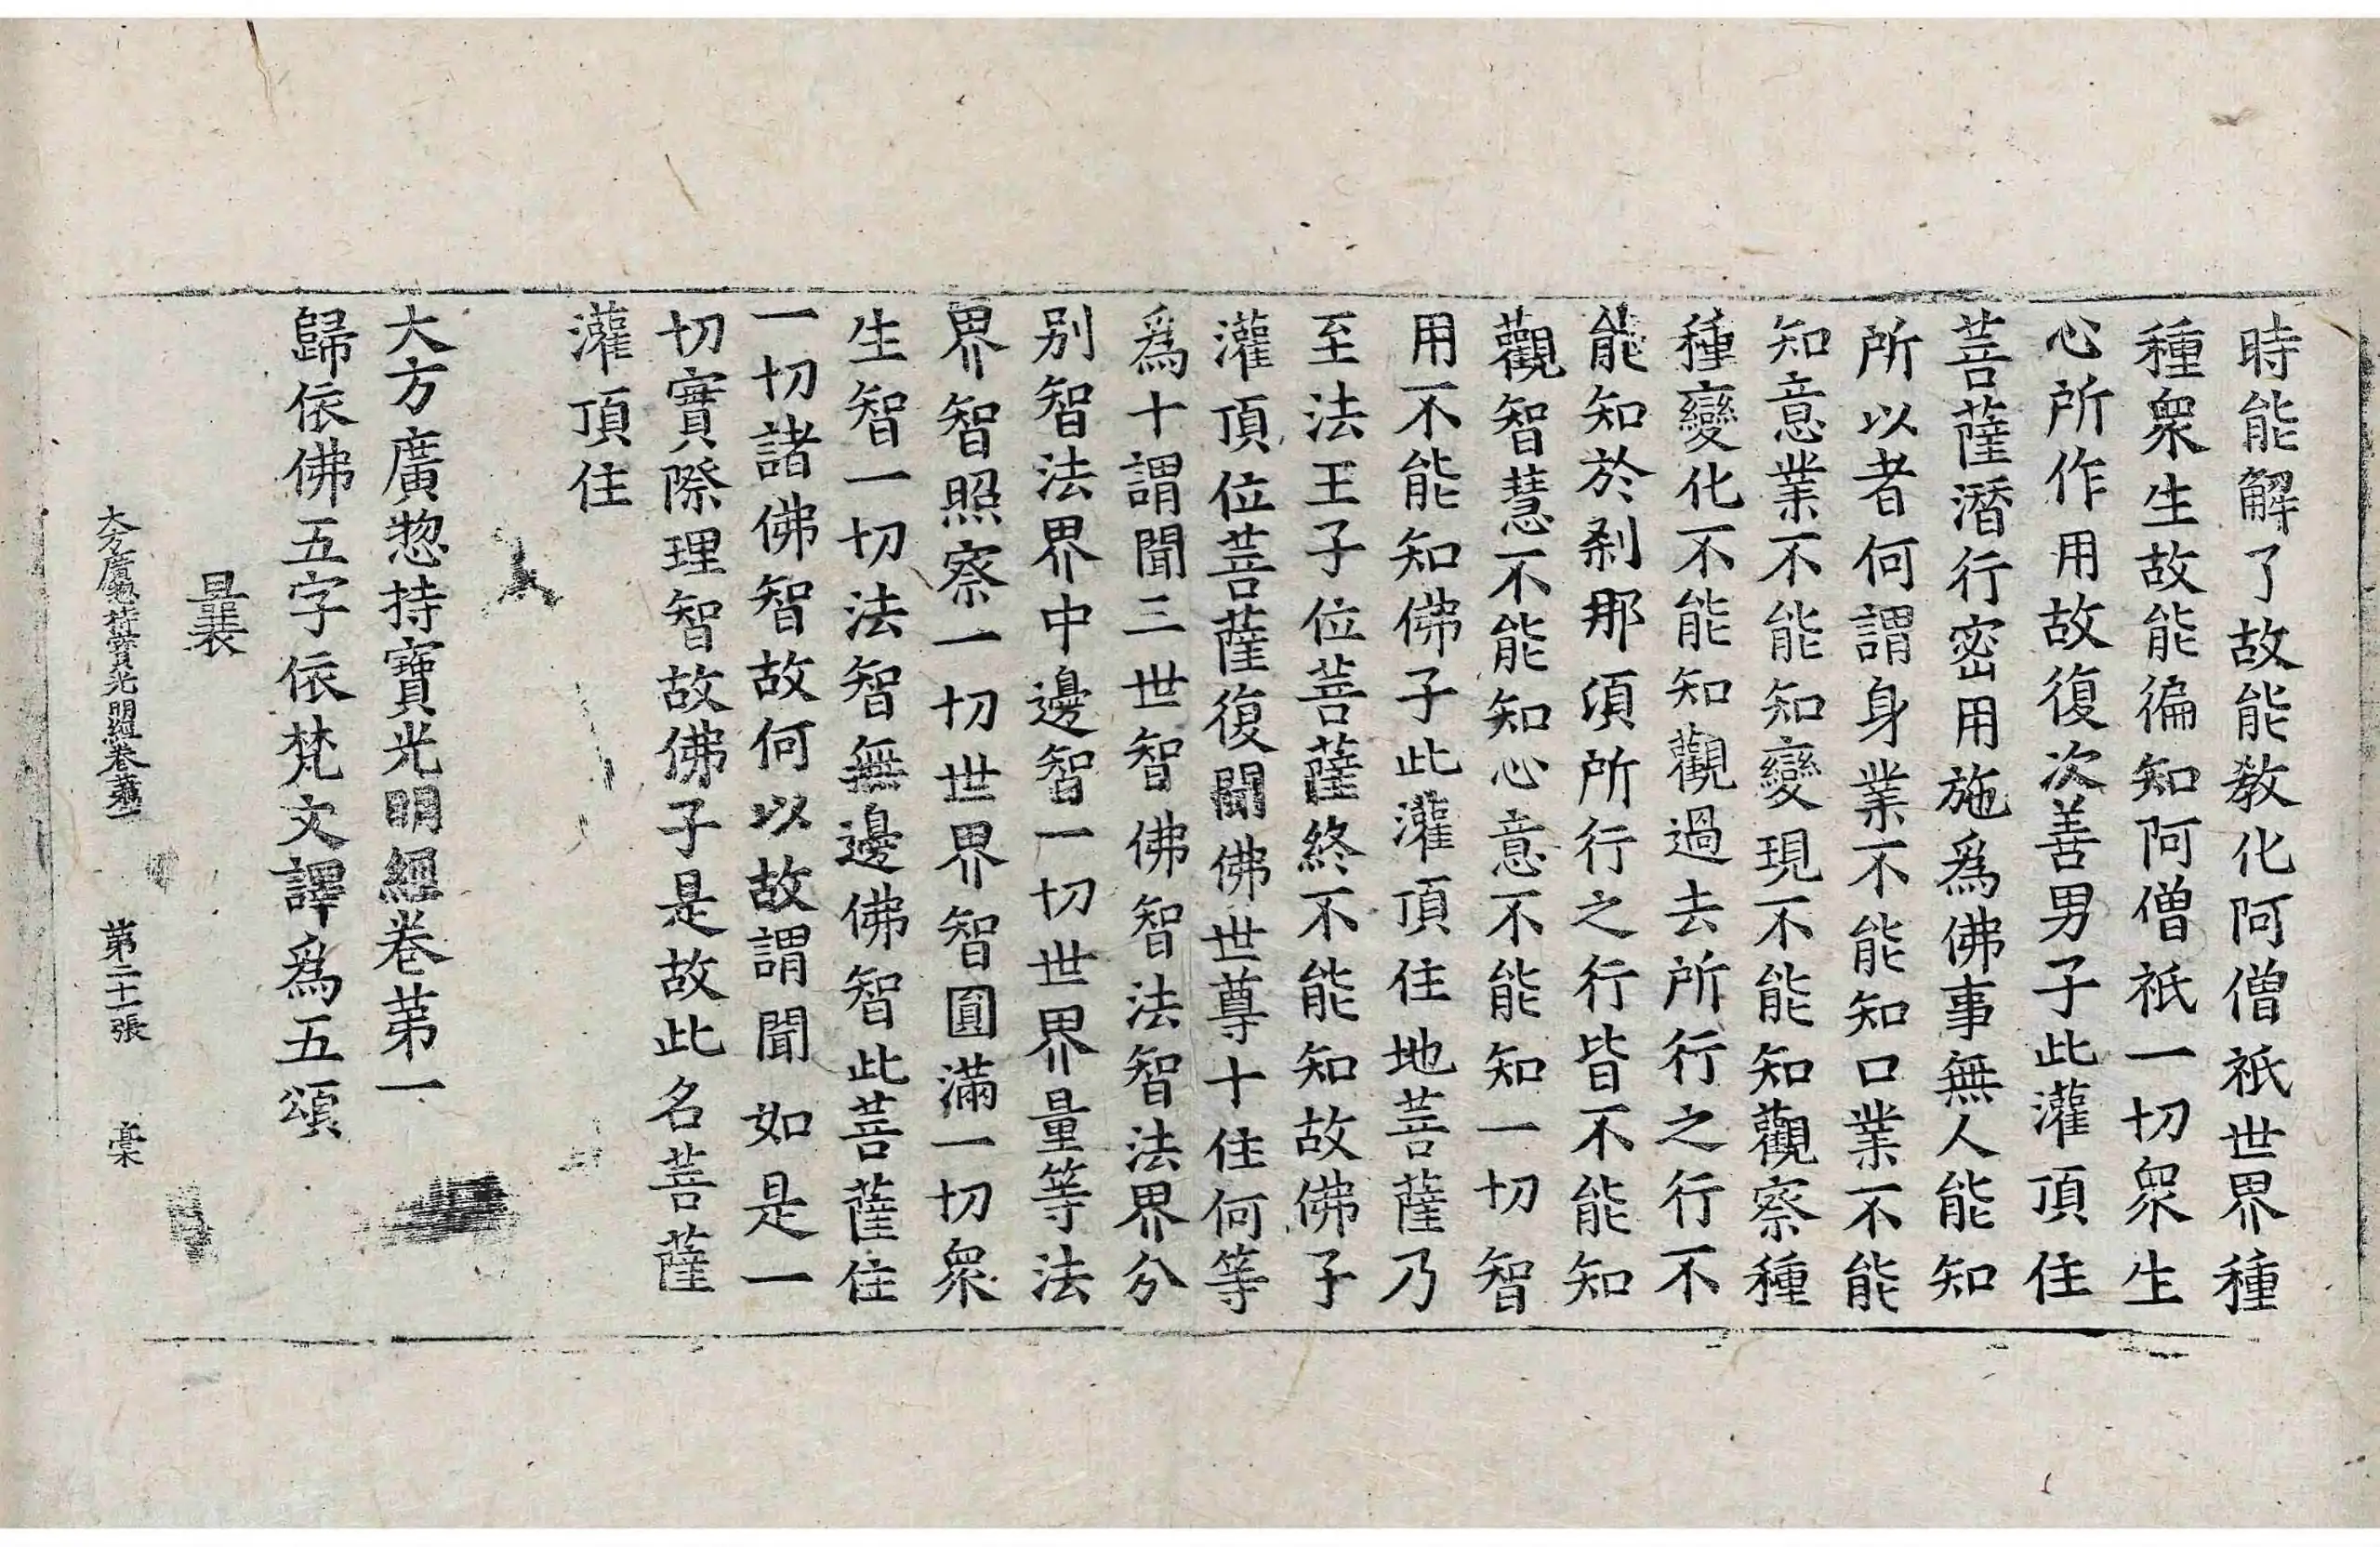 時能解了故能教化阿僧祇世界種
種衆生故能徧知阿僧祇一切衆生
心所作用故復次善男子此灌頂住
菩薩潛行密用施爲佛事無人能知
所以者何謂身業不能知口業不能
知意業不能知變現不能知觀察種
種變化不能知觀過去所行之行不
能知於刹那湏所行之行皆不能知
觀智慧不能知心意不能知一切智
用不能知佛子此灌頂住地菩薩乃
至法王子位菩薩終不能知故佛子
灌頂位菩薩復聞佛世尊十住何等
爲十謂聞三世智佛智法智法界分
别智法界中邊智一切世界量等法
界智照察一切世界智圓滿一切衆
生智一切法智無邊佛智此菩薩住
一切諸佛智故何以故謂聞如是一
切實際理智故佛子是故此名菩薩
灌頂住
大方廣惣持寶光明經卷苐一
歸依佛五字依梵文譯爲五頌
曩
大方廣惣持寶光明經卷苐一 苐二十一張 槀